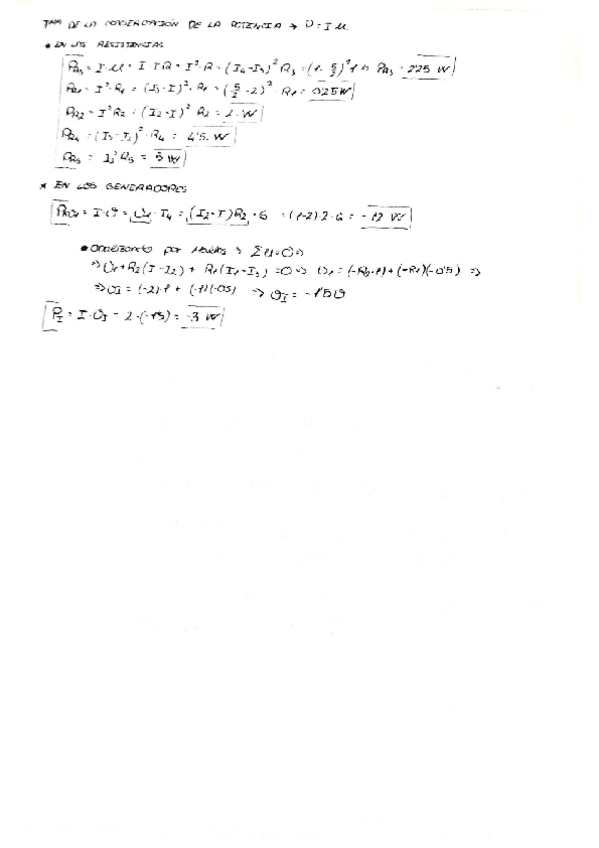 Tma DE LA CONSERVACION DE LA POTENCIA → P = I·u
• EN LAS RESISTENCIAS
PR3 = I·u = I·I·R = I²·R = (I4-I3)² R3 = (1-5/2)²·1 ⇒ PR3 = 2'25 W
PR1 = I²·R1 = (I3-I)²·R1 = (5/2-2)² R1 = 0'25W
PR2 = I²R2 = (I2-I)² R2 = 2 W
PR4 = (I3-I2)²·R4 = 4'5 W
PR5 = I2² R5 = 3 W
* EN LOS GENERADORES
= (I2-I)R2·6 = (1-2)·2·6 = -12 W
• Analizando por Mallas → Σu=0 ⇒
⇒ UI + R2(I-I2) + R1(I-I3) = 0 ⇒ UI = (-R2·1) + (-R1)(-0'5) ⇒
⇒ UI = (-2)·1 + (-1)(-0'5) ⇒ UI = -1'5V
PI = I·UI = 2·(-1'5) = -3 W